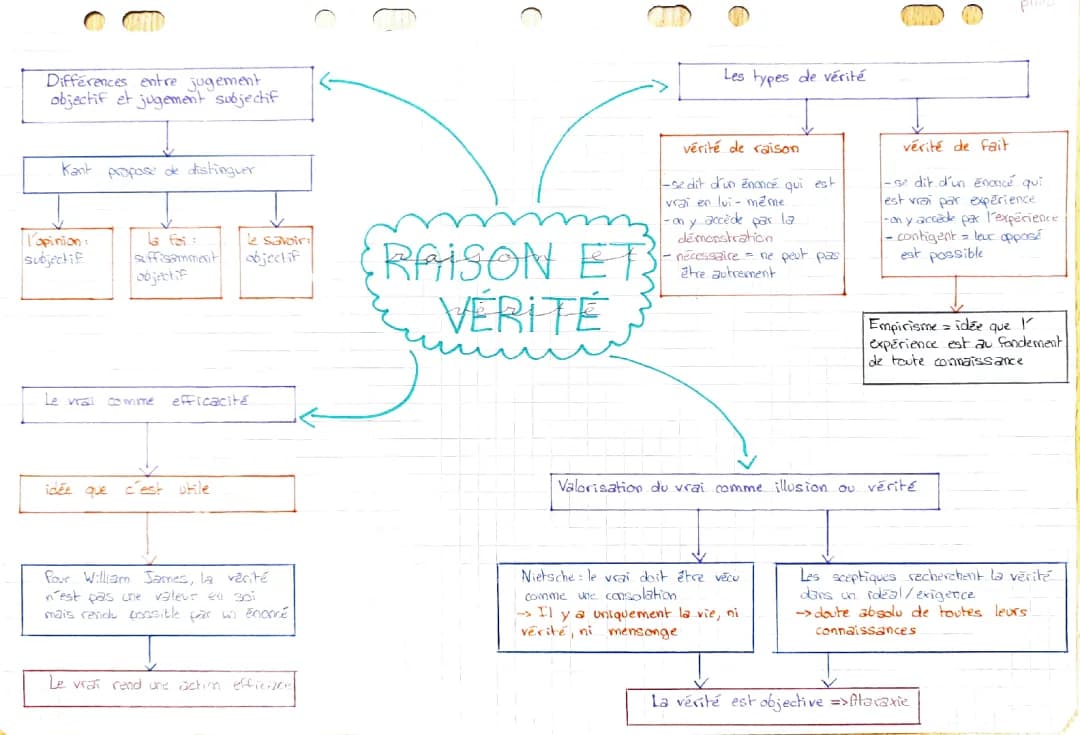 Différences entre jugement
objectif et jugement subjectif
Kant propose de distinguer
l'opinion :
subjectif
la foi :
suffisamment
objectif
le savoir:
objectif
Les types de vérité
vérité de raison
- se dit d'un énoncé qui est
vrai en lui-même
- on y accède par la
démonstration
- nécessaire = ne peut pas
être autrement
vérité de fait
- se dit d'un énoncé qui
est vrai par expérience
- on y accède par l'expérience
- contigent = leur opposé
est possible
Empirisme = idée que l'
expérience est au fondement
de toute connaissance
RAISON ET
VÉRITÉ
Le vrai comme efficacité
idée que c'est utile
Pour William James, la vérité
n'est pas une valeur en soi
mais rendu possible par un énoncé
Le vrai rend une action efficace
Valorisation du vrai comme illusion ou vérité
Nietsche : le vrai doit être vécu
comme une consolation
→ Il y a uniquement la vie, ni
vérité, ni mensonge
Les sceptiques recherchent la vérité
dans un idéal/exigence
→ doute absolu de toutes leurs
connaissances
La vérité est objective => Ataraxie